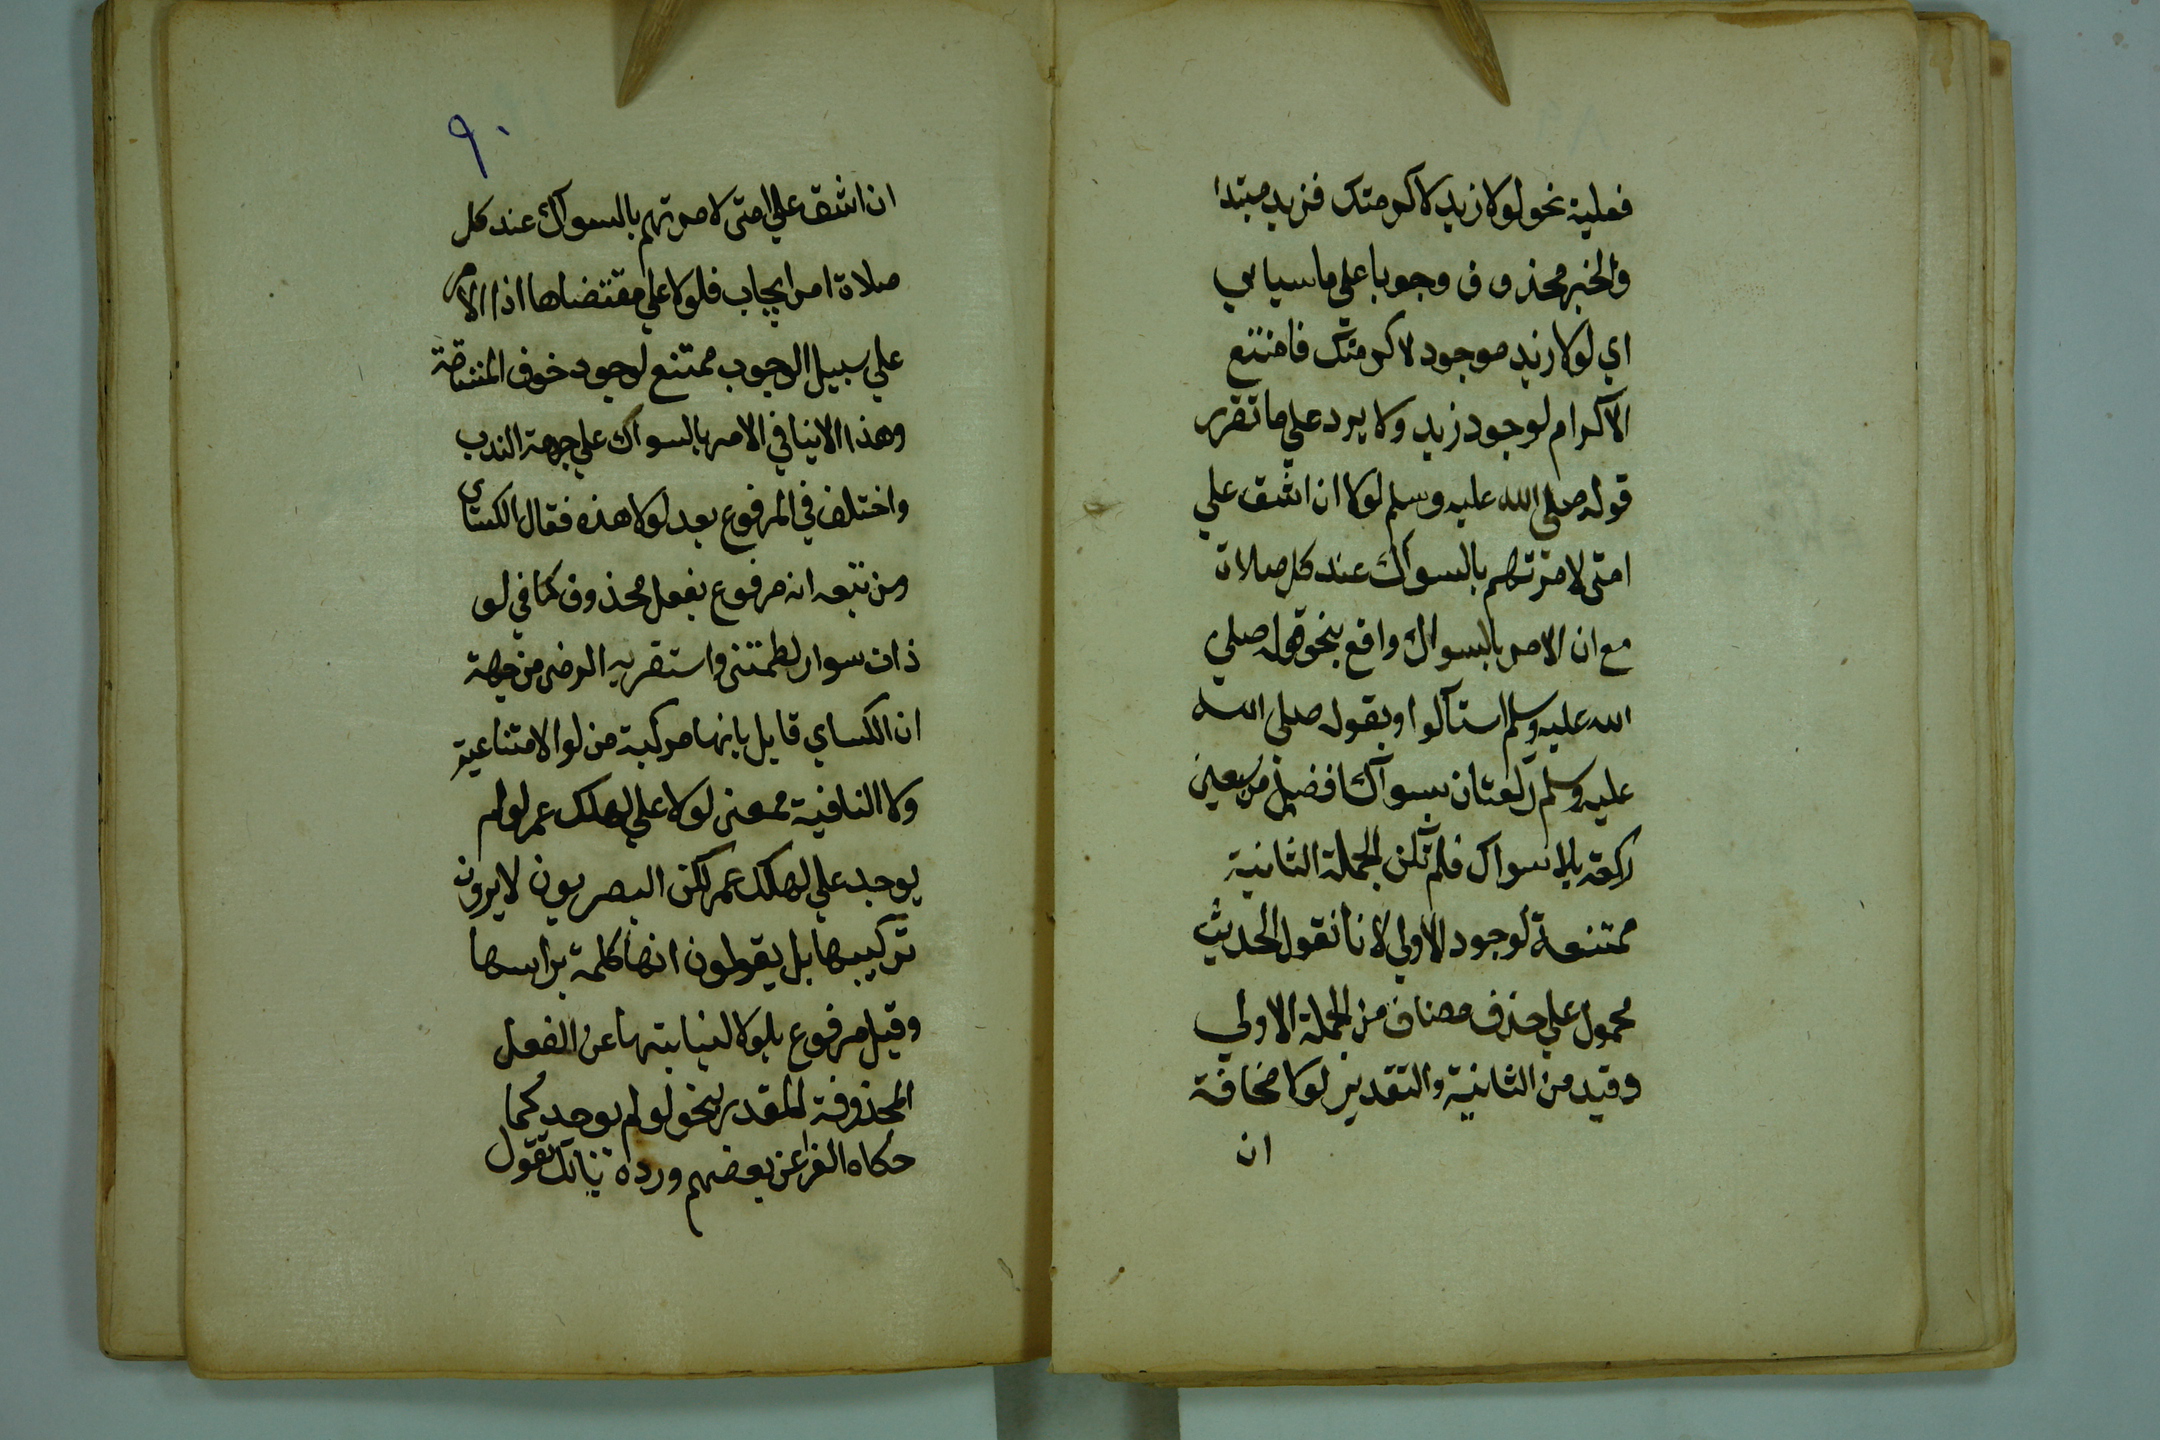 فعلية نحو لولا زيد لاكرمتك فزيد مبتدا
والخبر محذوف وجوبا علي ما سياتي
اي لولا زيد موجود لاكرمتك فامتنع
الاكرام لوجود زيد ولا يرد علي ما تقرر
قوله صلي الله عليه وسلم لولا ان اشق علي
امتي لامرتهم بالسواك عند كل صلاة
مع ان الامر بالسواك واقع بنحو قوله صلي
الله عليه وسلم استاكوا وبقوله صلي الله
عليه وسلم ركعتان بسواك افضل من سبعين
ركعة بلا سواك فلم تكن الجملة الثانية
ممتنعة لوجود الاولي لانا نقول الحديث
محمول علي حذف مضاف من الجملة الاولي
وقيد من الثانية والتقدير لولا مخافة
ان
٩٠
ان اشق علي امتي لامرتهم بالسواك عند كل
صلاة امر ايجاب فلولا علي مقتضاها اذا الامر
علي سبيل الوجوب ممتنع لوجود خوف المشقة
وهذا لاينافي الامر بالسواك علي جهة الندب
واختلف في المرفوع بعد لولا هذه فقال الكسائي
ومن تبعه انه مرفوع بفعل محذوف كما في لو
ذات سوار لطمتني واستقر به الرضي من جهة
ان الكساي قايل بانها مركبة من لو الامتناعية
ولا النافية فمعني لولا علي لهلك عمر لو لم
يوجد علي لهلك عمر لكن البصريون لا يرون
تركيبها بل يقولون انها كلمة براسها
وقيل مرفوع بلولا لنيابتها عن الفعل
المحذوفة المقدر بنحو لو لم يوجد كما
حكاه الفرا عن بعضهم ورده بانك تقول